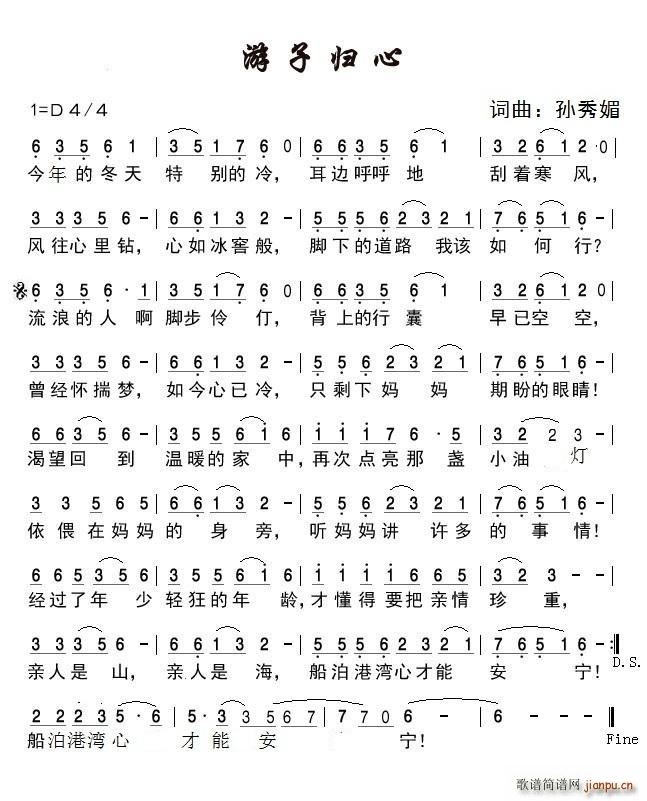 游子归心
1=D 4/4 词曲：孙秀媚
6 3 5 6 1 | 3 5 1 7 6 0 | 3 3 5 6 6 1 | 3 2 6 1 2·0 |
今年的冬天 特别的冷，耳边呼呼地 刮着寒风，
3 3 3 5 6 - | 6 6 1 3 2 - | 5 5 5 6 2 3 2 1 | 7 6 5 1 6 - |
风往心里钻，心如冰窖般，脚下的道路 我该如何行？
6 3 5 6 · 1 | 3 5 1 7 6 0 | 3 3 5 6 6 1 | 3 2 6 1 2 0 |
流浪的人啊脚步伶仃，背上的行囊 早已空空，
3 3 3 5 6 - | 6 6 1 3 2 - | 5 5 5 6 2 3 2 1 | 7 6 5 1 6 - |
曾经怀揣梦，如今心已冷，只剩下妈妈 期盼的眼睛！
6 6 3 5 6 - | 5 5 5 6 1 6 | 1 1 1 7 6 · 5 | 3 2 2 3 - |
渴望回到 温暖的家中，再次点亮那盏小油灯
3 3 5 6 5 | 6 6 1 3 2 - | 5 5 5 6 2 3 2 1 | 7 6 5 1 6 - |
依偎在妈妈的身旁，听妈妈讲许多的事情！
6 6 5 3 5 6 | 5 5 5 6 1 6 | 1 1 1 1 6 6 5 | 3 2 3 - - |
经过了年少轻狂的年龄，才懂得要把亲情珍重，
3 3 3 5 6 - | 6 6 1 3 2 - | 5 5 5 6 2 3 2 1 | 7 6 5 5 1 6 - :‖
亲人是山，亲人是海，船泊港湾心才能安宁！ D.S.
2 2 2 2 3 5 · 6 | 5 · 5 3 5 6 7 | 7 7 0 6 - | 6 - - - ‖
船泊港湾心 才能安 宁！ Fine
歌谱简谱网
jianpu.cn